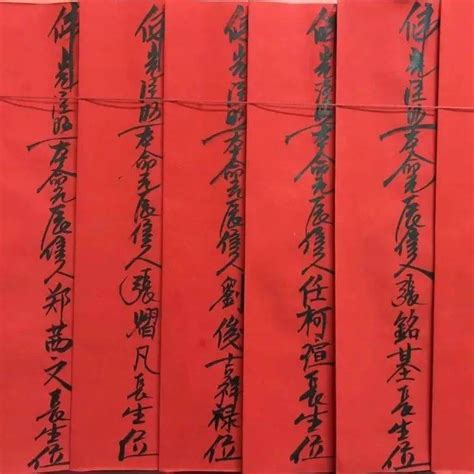 佛光注照本命元辰信人張銘基長生位
佛光注照本命元辰信人任柯瑄長生位
佛光注照本命元辰信人劉俊吉祥禄位
佛光注照本命元辰信人張熠凡長生位
佛光注照本命元辰信人郑茜文長生位